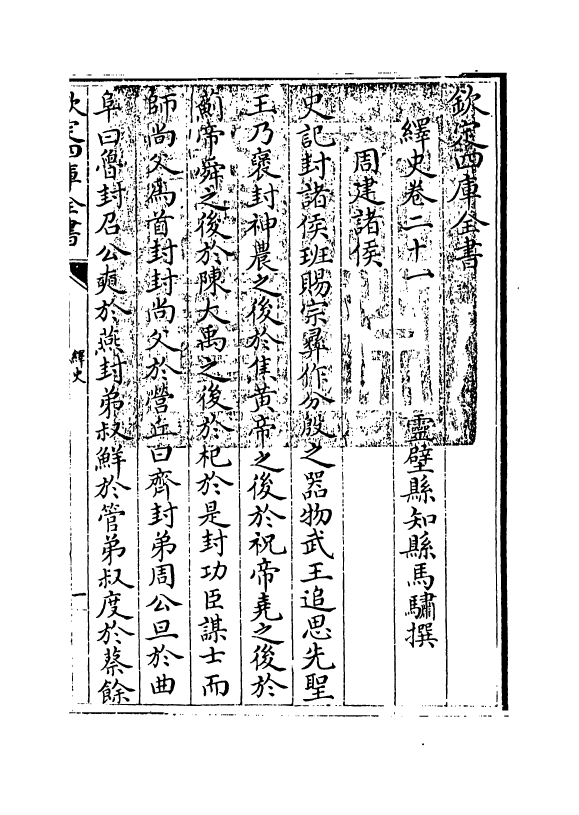 欽定四庫全書
繹史卷二十一
靈壁縣知縣馬驌撰
周建諸侯
史記封諸侯班賜宗彞作分殷之器物武王追思先聖
王乃褒封神農之後於焦黃帝之後於祝帝堯之後於
薊帝舜之後於陳大禹之後於杞於是封功臣謀士而
師尚父為首封封尚父於營丘曰齊封弟周公旦於曲
阜曰魯封召公奭於燕封弟叔鮮於管弟叔度於蔡餘
欽定四庫全書
繹史
一